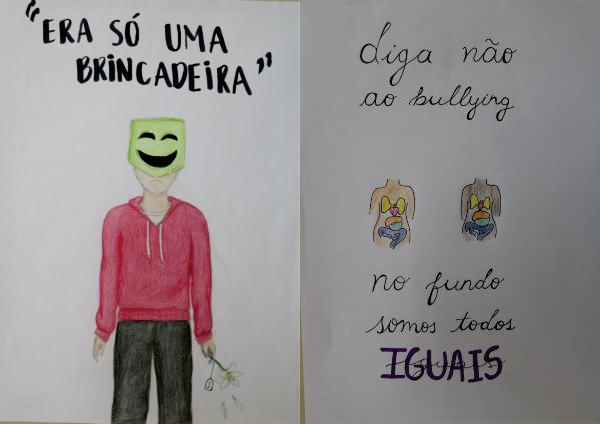 "ERA SÓ UMA
BRINCADEIRA"
diga não
ao bullying
no fundo
somos todos
IGUAIS